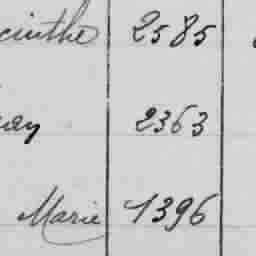 cinthe 2585
ay 2363
Marie 1396